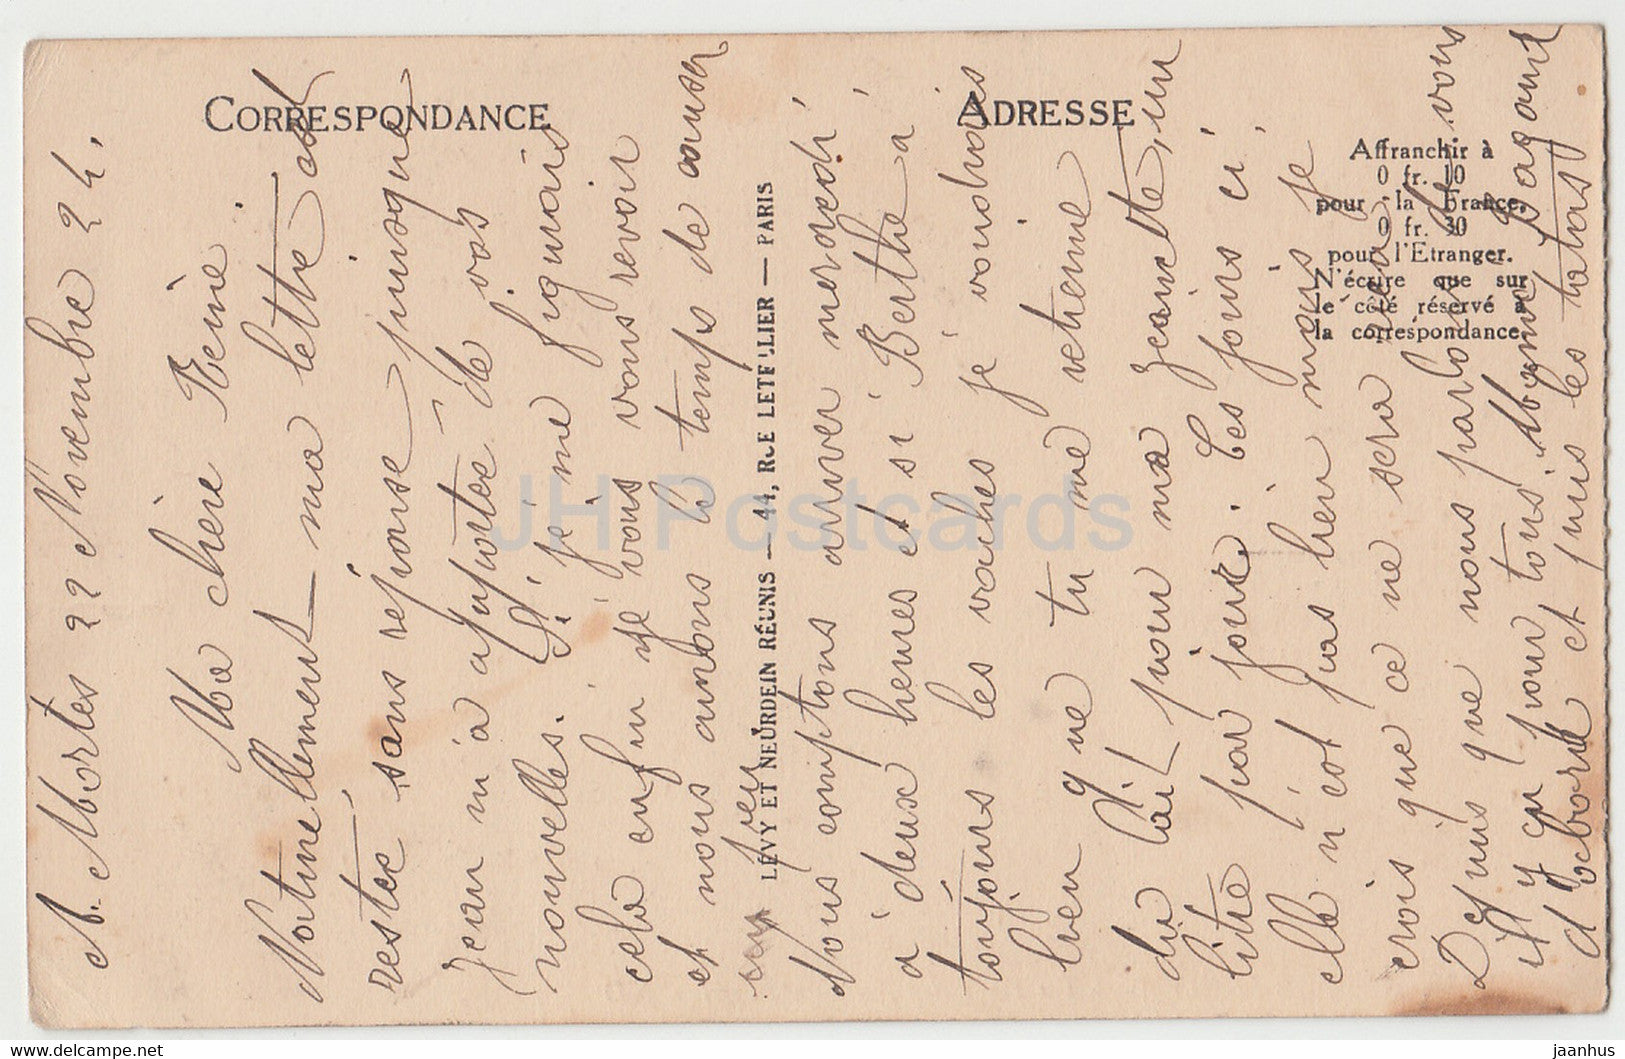 CORRESPONDANCE
ADRESSE
Affranchir à
0 fr. 10
pour la France.
0 fr. 30
pour l'Etranger.
N'écrire que sur
le côté réservé à
la correspondance.
LÉVY ET NEURDEIN RÉUNIS — 44, RUE LETELLIER — PARIS
A. Mortes 22 Novembre 24.
Ma chère Reine
Naturellement ma lettre est
restée sans réponse jusque
Jean m'a apporté de vos
nouvelles. Si je me figurais
cela enfin je vais vous revoir
et nous aurons le temps de causer
un peu
Nous comptons arriver mercredi
à deux heures et si Berthe a
toujours les vaches je voudrais
bien que tu me retienne
du lait pour ma Jeannette, un
litre par jour. Ces jours ci
elle n'est pas bien mais je
crois que ce ne sera
Depuis que nous parlons de vous
il y en pour tous. Mémé Pagant
d'abord et puis les tatas
JH Postcards
jaanhus
delcampe.net